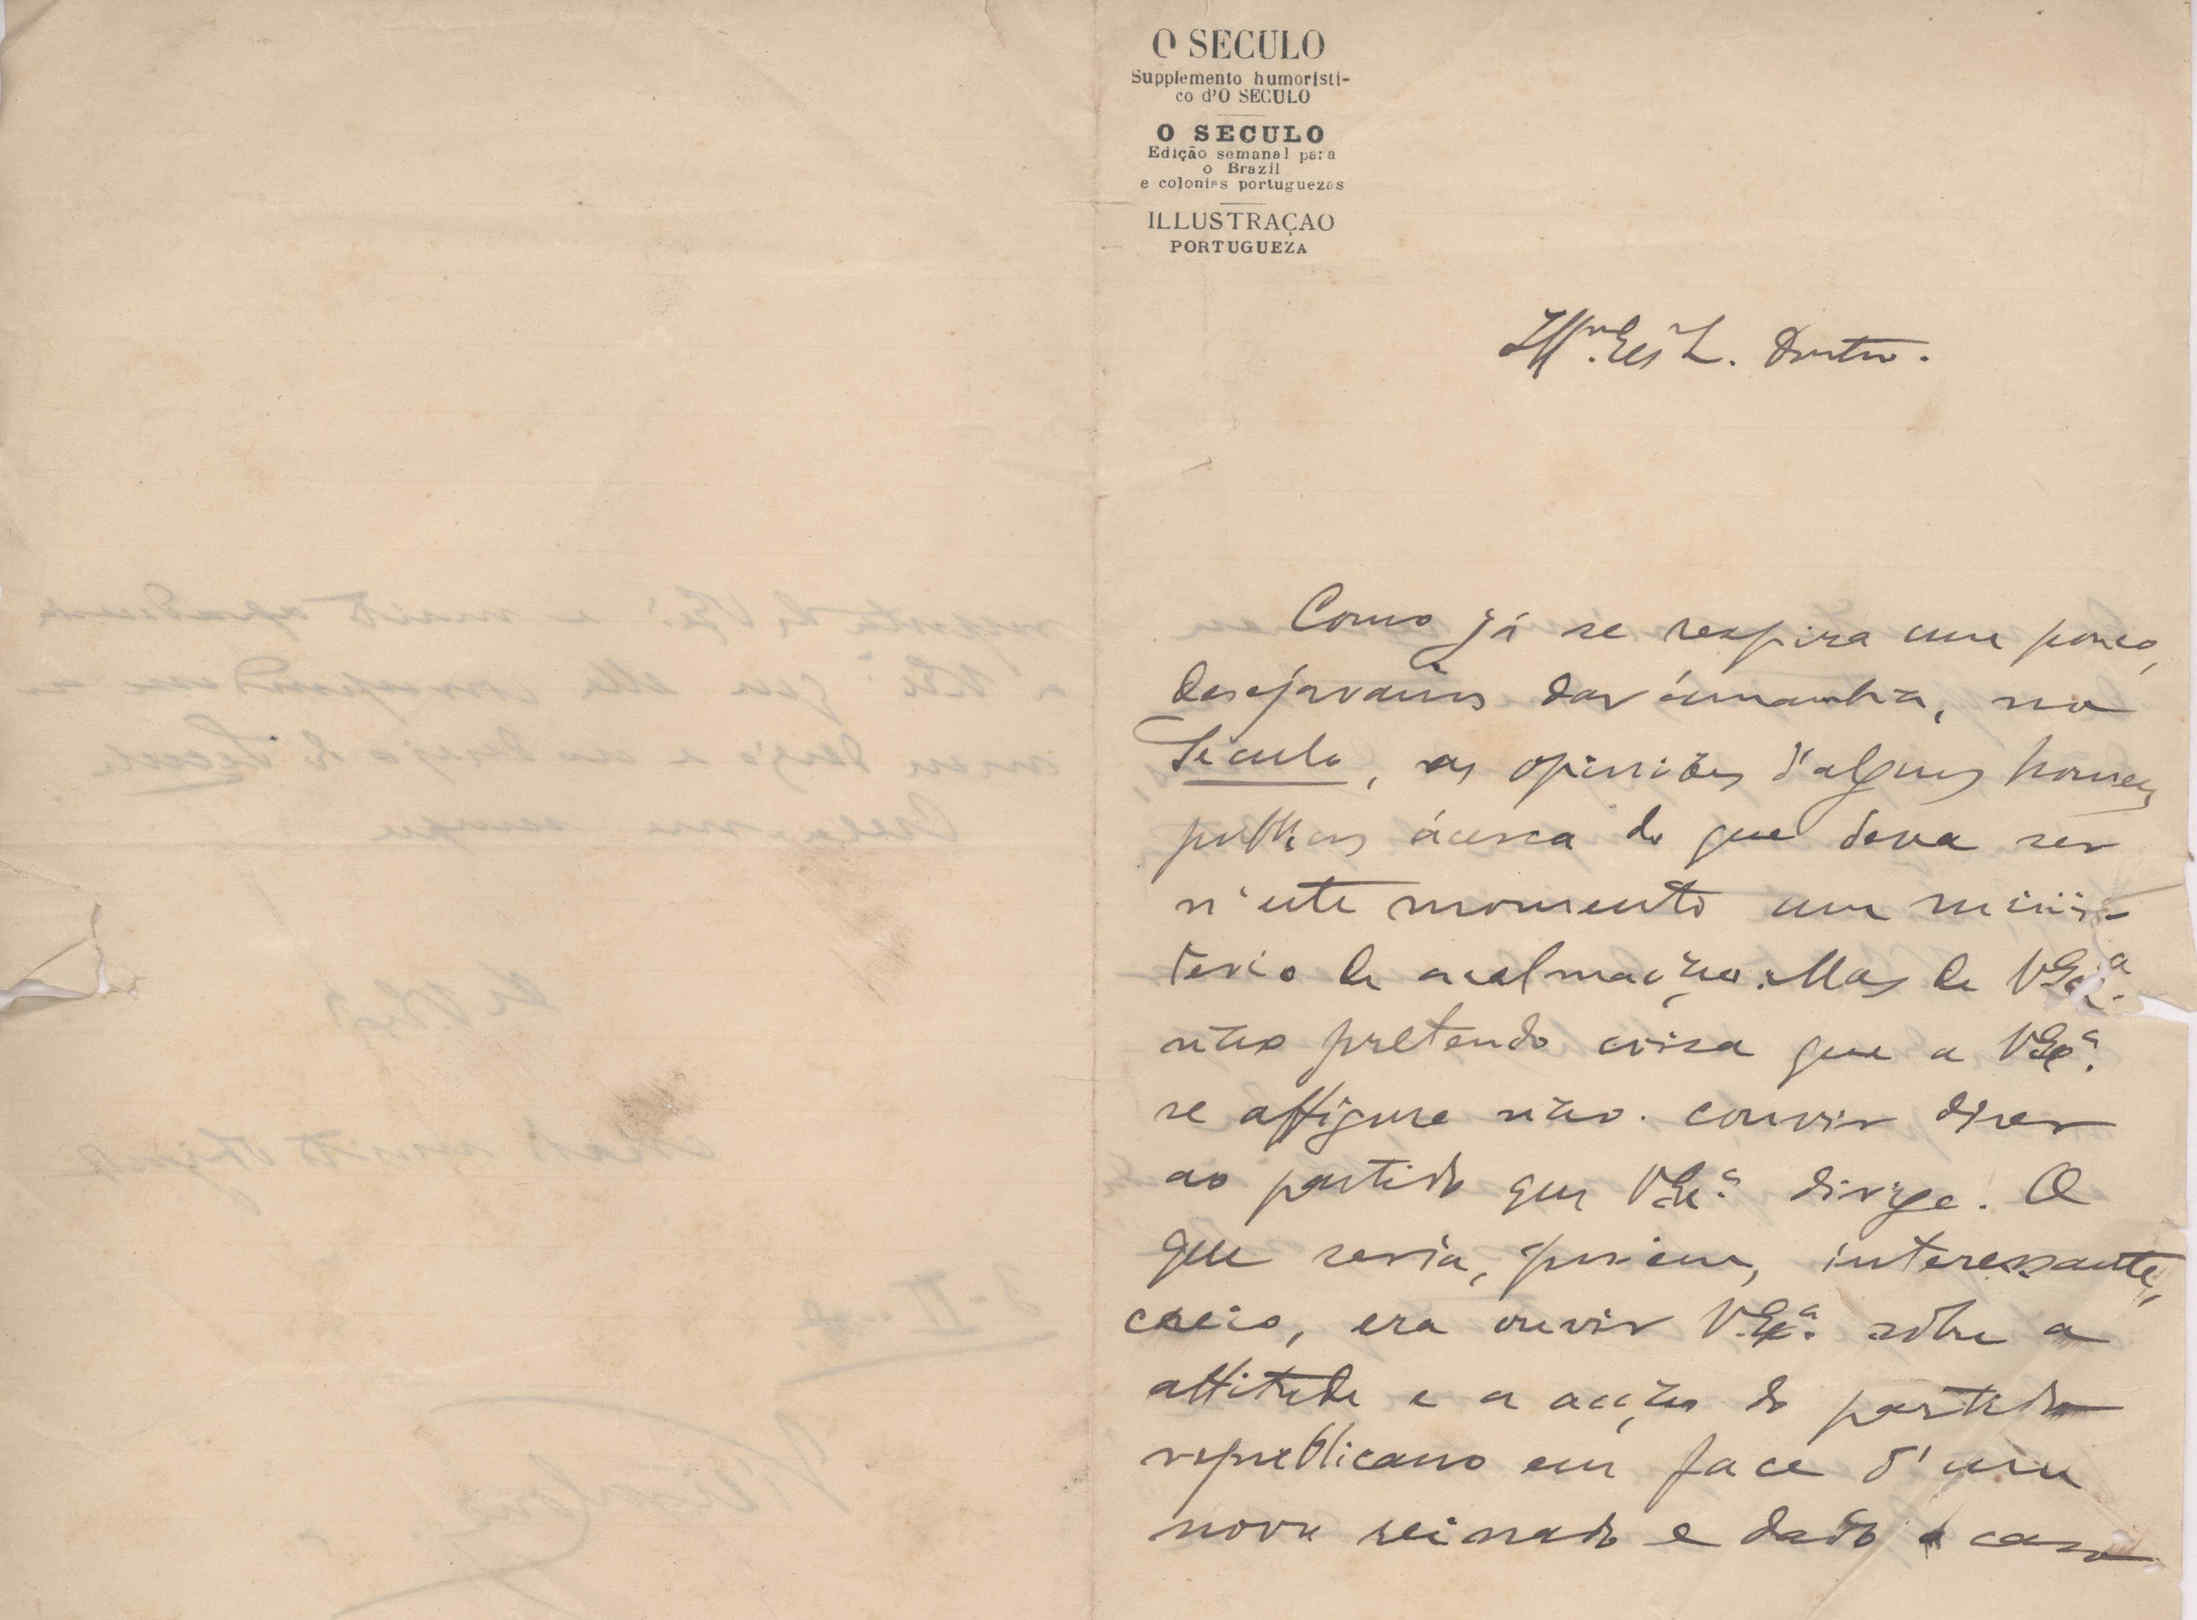 O SECULO
Supplemento humoristi-
co d'O SECULO
O SECULO
Edição semanal para
o Brazil
e colonias portuguezas
ILLUSTRAÇAO
PORTUGUEZA
Doutor.
Como já se respira um pouco,
desejavamos dar ámanhã, no
Seculo, as opiniões d'alguns homens
publicos ácerca do que deva ser
n'este momento um minis-
terio de acalmação. Mas de V. Ex.ª
não pretendo coisa que a V. Ex.ª
se affigure não convir dizer
ao partido que V. Ex.ª dirige. O
que seria, porém, interessante,
creio, era ouvir V. Ex.ª sôbre a
attitude e a acção do partido
republicano em face d'um
novo reinado e dado o caso